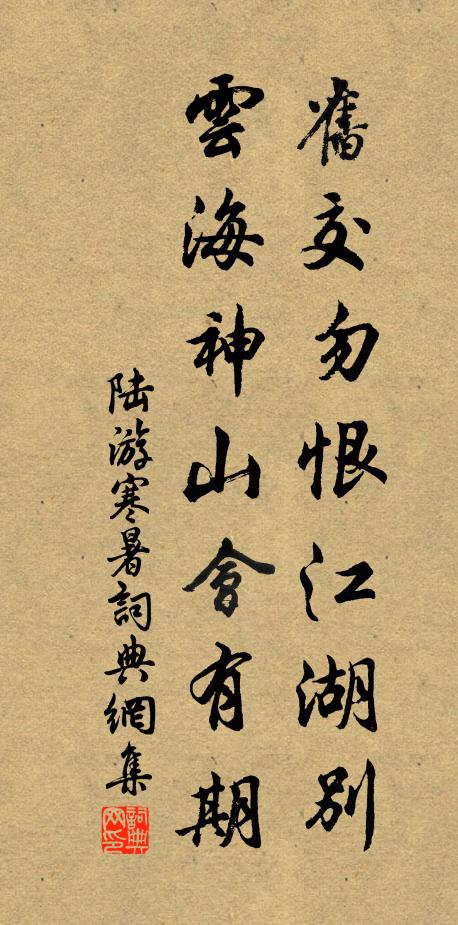 舊交勿恨江湖別
雲海神山會有期
陆游寒暑詞典網集
詞典网印